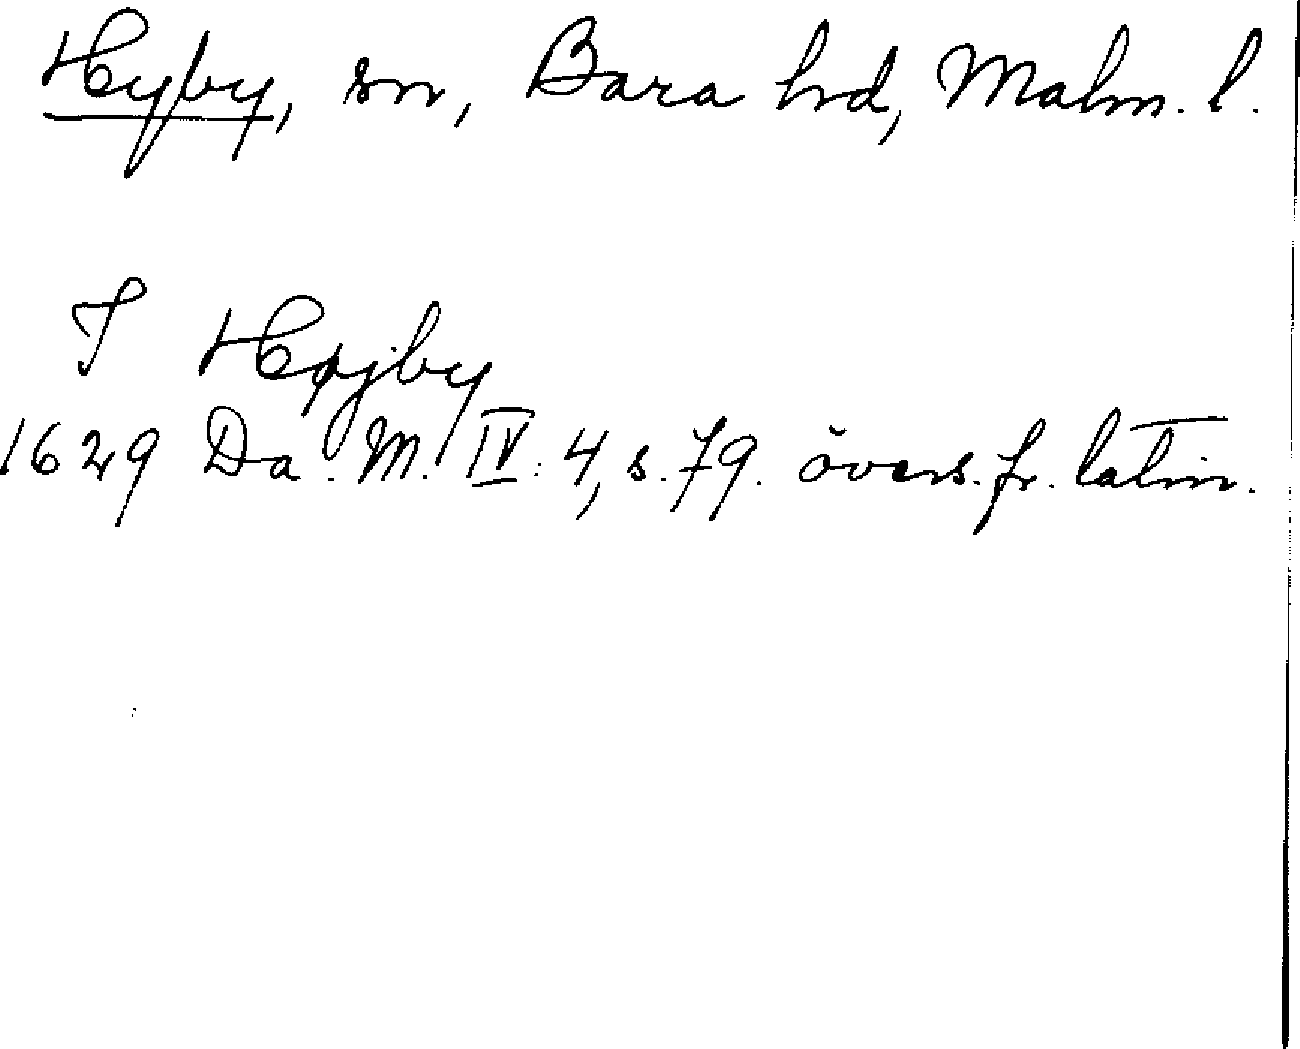 Hyby, sn, Bara hd, Malm. l.
I Højby
1629 Da. M. IV: 4, s. 79. övers. fr. latin.